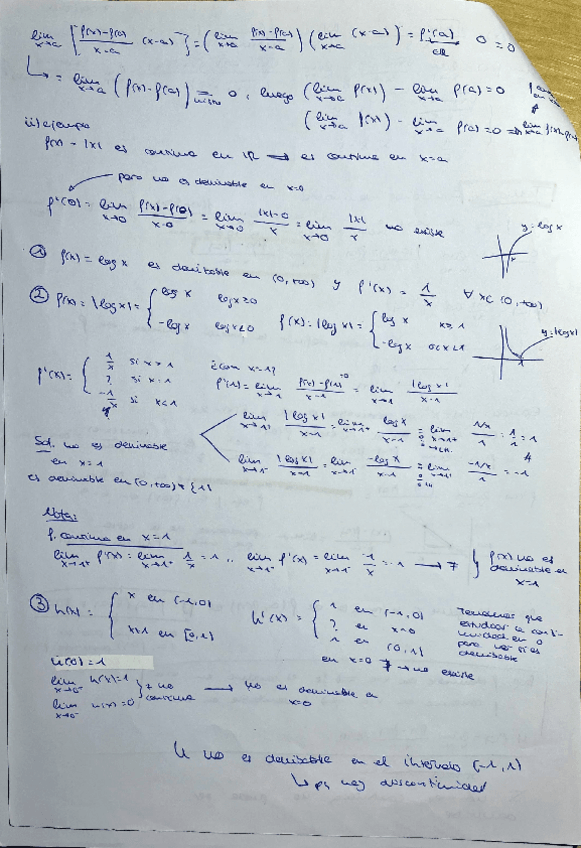 lim x→a [ (f(x)-f(a))/(x-a) (x-a) ] = ( lim x→a (f(x)-f(a))/(x-a) ) ( lim x→a (x-a) ) = f'(a) · 0 = 0
↳ = lim x→a ( f(x)-f(a) ) = 0, luego ( lim x→a f(x) ) - lim x→a f(a) = 0
( lim x→a f(x) ) - lim x→a f(a) = 0 ⇒ lim x→a
ii) ejemplo
f(x) = |x| es continua en ℝ → es continua en x=a
pero no es derivable en x=0
f'(0) = lim x→0 (f(x)-f(0))/(x-0) = lim x→0 (|x|-0)/x = lim x→0 |x|/x no existe
y=log x
① f(x) = log x es derivable en (0,+∞) y f'(x) = 1/x ∀x∈(0,+∞)
② f(x) = |log x| = { log x log x≥0
-log x log x<0
f(x) = |log x| = { log x x≥1
-log x 0<x<1
y=|log x|
f'(x) = { 1/x si x>1
? si x=1
-1/x si x<1
¿con x=1?
f'(1) = lim x→1 (f(x)-f(1))/(x-1) = lim x→1 |log x|/(x-1)
lim x→1⁺ |log x|/(x-1) = lim x→1⁺ log x/(x-1) = lim x→1⁺ (1/x)/1 = 1/1 = 1
lim x→1⁻ |log x|/(x-1) = lim x→1⁻ -log x/(x-1) = lim x→1⁻ (-1/x)/1 = -1
Sol. no es derivable
en x=1
es derivable en (0,+∞) - {1}
Nota:
f. continua en x=1
lim x→1⁺ f'(x) = lim x→1⁺ 1/x = 1 lim x→1⁻ f'(x) = lim x→1⁻ -1/x = -1 → ≠ } f(x) no es
derivable en
x=1
③ h(x) = { x en (-1,0)
x+1 en [0,1)
h'(x) = { 1 en (-1,0)
? en x=0
1 en (0,1)
en x=0 ∄ → no existe
Tenemos que
estudiar la conti-
nuidad en 0
para ver si es
derivable
h(0)=1
lim x→0⁺ h(x)=1
lim x→0⁻ h(x)=0
} ≠ no
continua → no es derivable en
x=0
h no es derivable en el intervalo (-1,1)
↳ pq hay discontinuidad